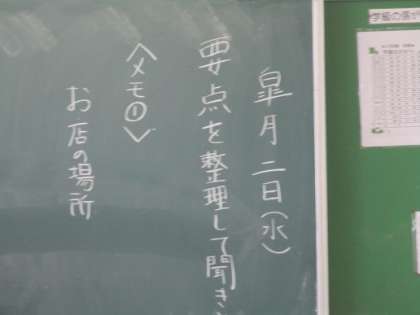 皐月二日(水)
要点を整理して聞き
〈メモ①〉
お店の場所
学級の